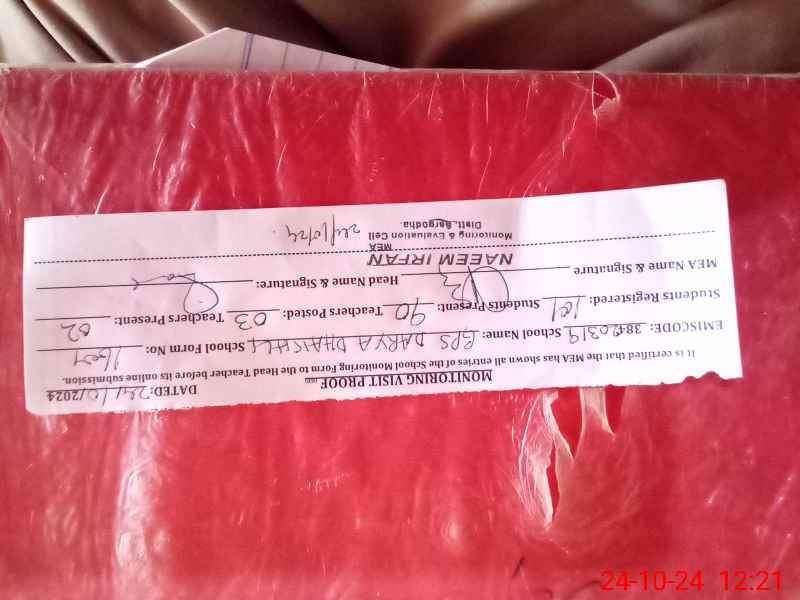 MONITORING VISIT PROOF DATED: 24/10/2024
It is certified that the MEA has shown all entries of the School Monitoring Form to the Head Teacher before its online submission.
EMISCODE: 38420319 School Name: GPS DARYA School Form No:
Students Registered: 101 Students Present: 90 Teachers Posted: 03 Teachers Present: 02
MEA Name & Signature Head Name & Signature:
NAEEM IRFAN
MEA
Monitoring & Evaluation Cell 24/10/24.
Distt. Sargodha.
24-10-24 12:21